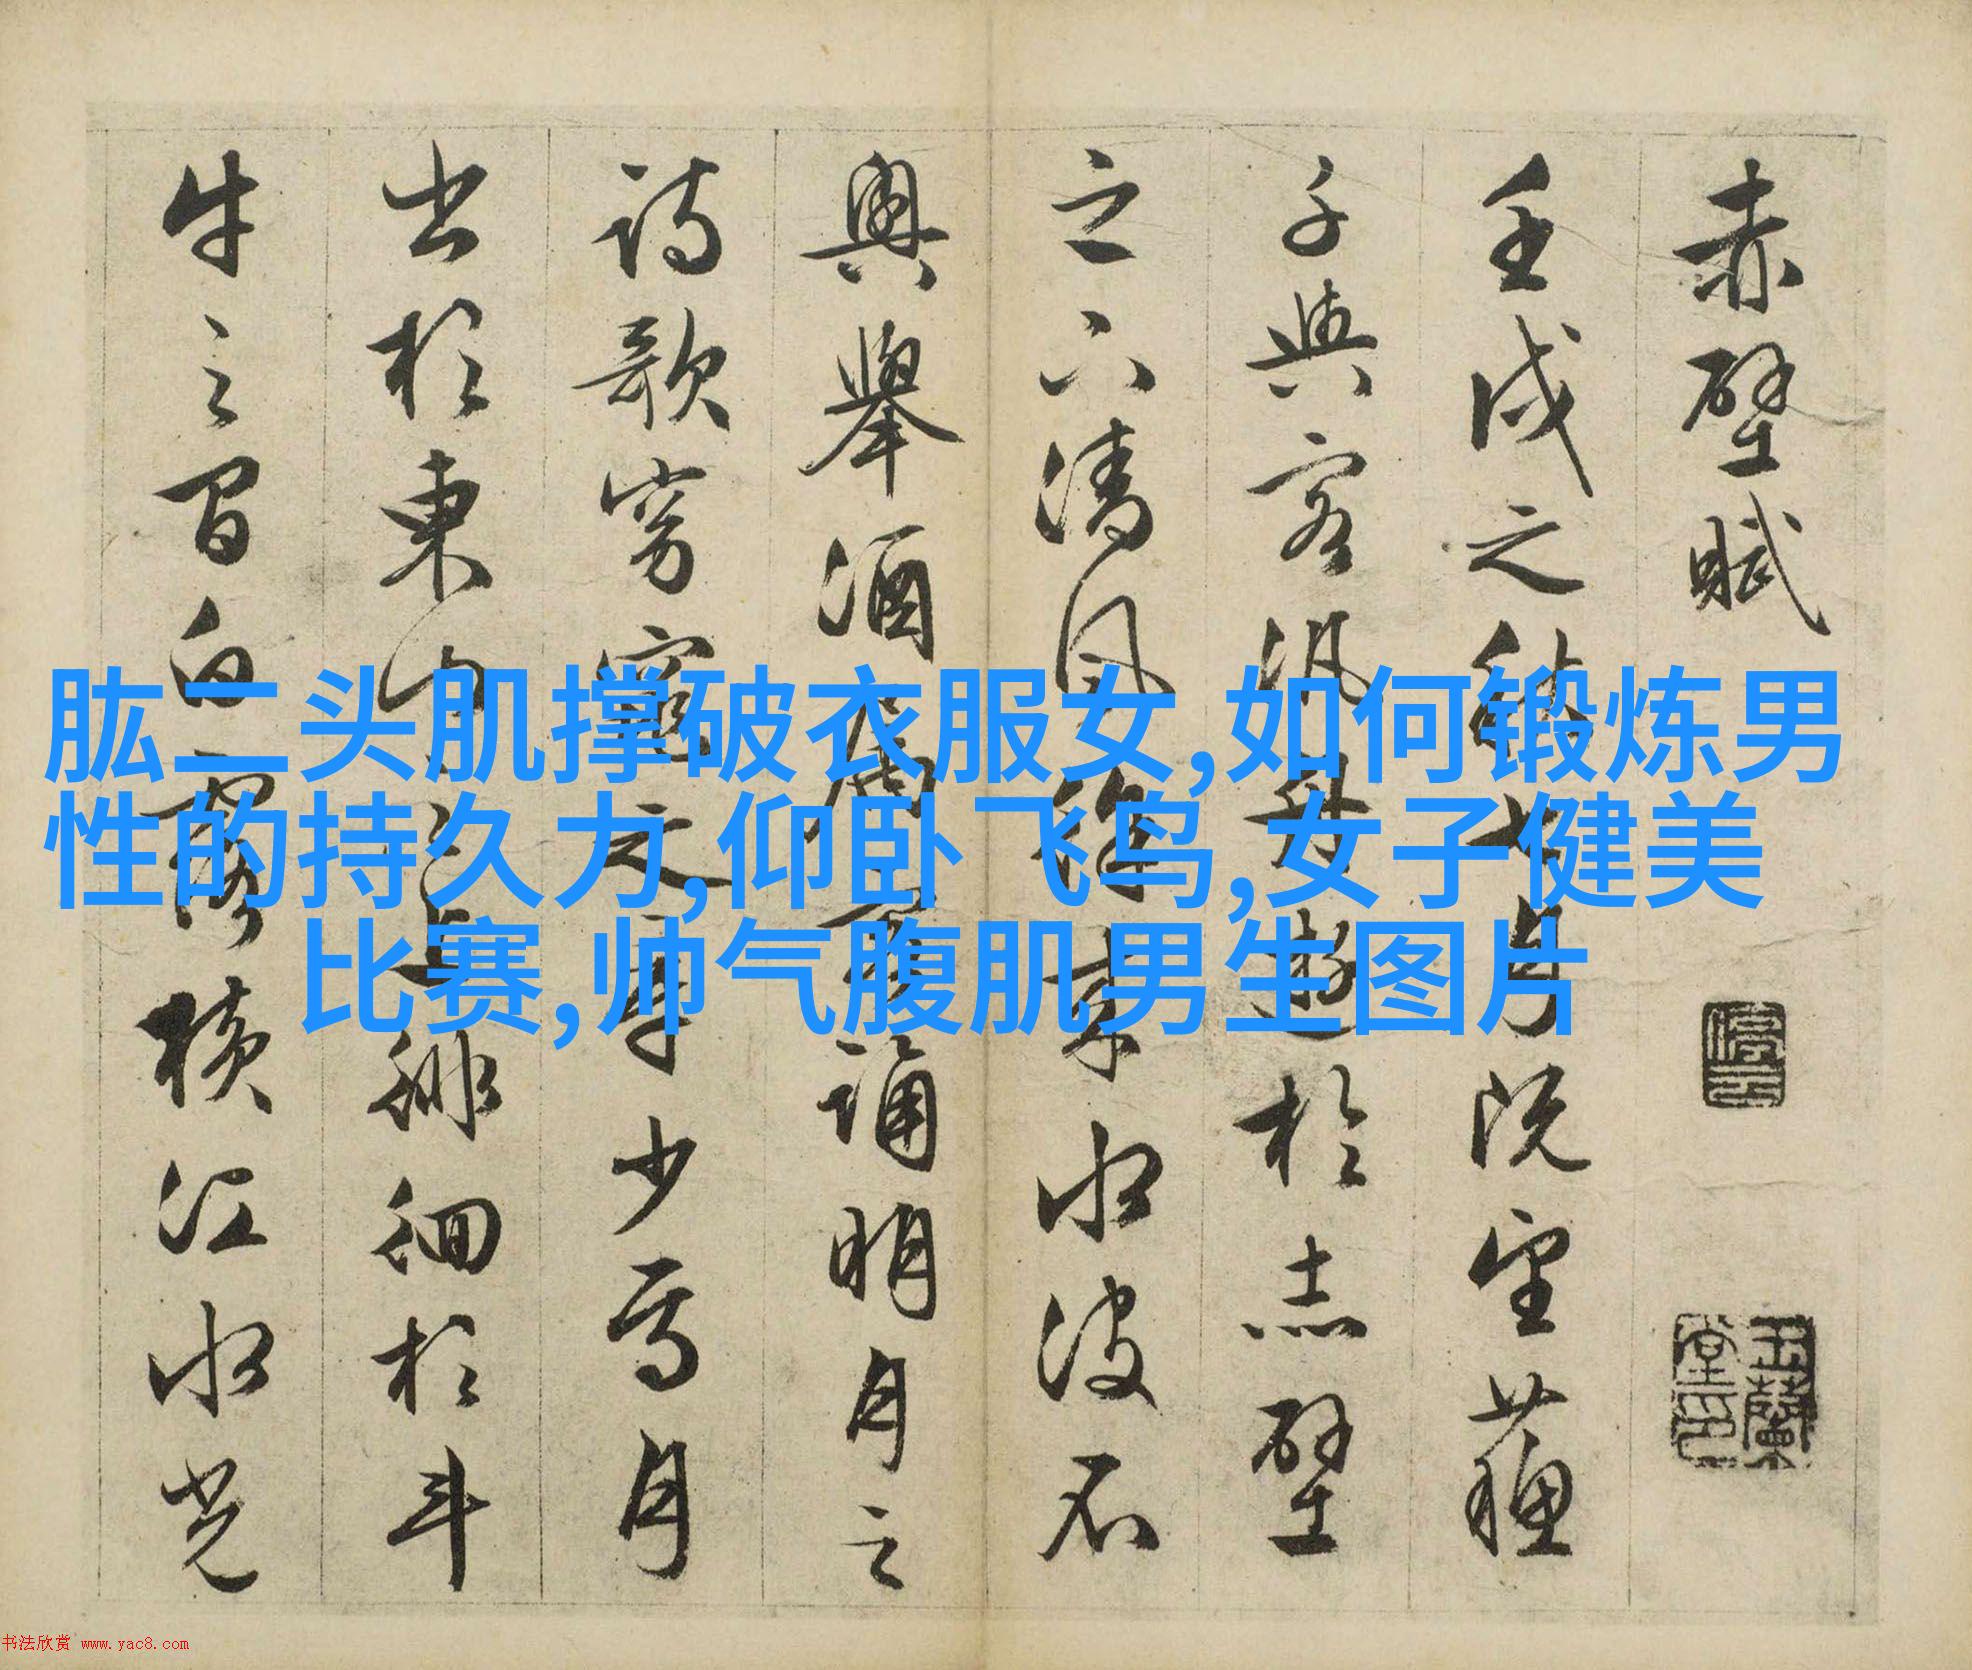 赤壁賦
壬戌之秋七月既望蘇
子與客汎舟遊於赤壁
之下清風徐來水波不
興舉酒屬客誦明月之
詩歌窈窕之章少焉月
出於東山之上徘徊於斗
牛之間白露橫江水光
玉蘭堂印
肱二头肌撑破衣服女,如何锻炼男
性的持久力,仰卧飞鸟,女子健美
比赛,帅气腹肌男生图片
书法欣赏 www.yac8.com